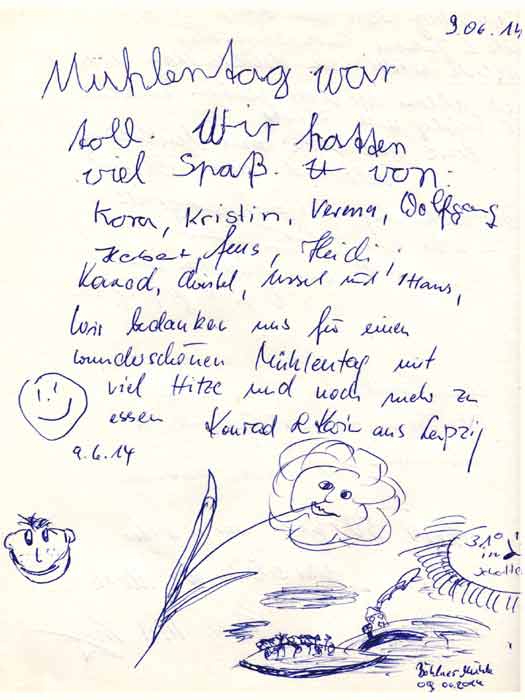 9.06.14
Mühlentag war
toll. Wir hatten
viel Spaß. von:
Kora, Kristin, Verena, Wolfgang
Jens, Heidi,
und Hans,
Wir bedanken uns für einen
wunderschönen Mühlentag mit
viel Hitze und noch mehr zu
essen Konrad & Karin aus Leipzig
9.6.14
31°
in
Mühle
09.06.2014